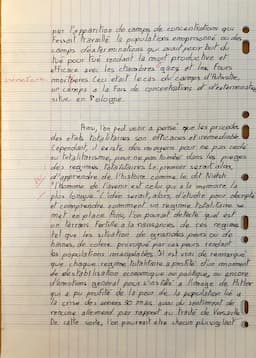 par l'apparition de camps de concentrations qui
faisait travaillé la populations emprisonné ou des
camps d'exterminations qui avait pour but du
tué pour tué rendant la mort productive et
efficace avec les chambres à gaz et les fours
mortuaires. Ceci était le cas du camps d'Autwitz,
un camps a la fois de concentrations et d'extermination
situé en Pologne.
Ainsi, l'on peut venir a pensé que les procédés
des états totalitaires son efficaces et irrémédiable
Cependant, il existe des moyens pour ne pas cedé
au totalitarisme, pour ne pas tombé dans les pièges
des régimes totalitaires. Le premier serait alors
d'apprendre de l'histoire comme le dit Nietzsche
"l'homme de l'avenir est celui qui a la mémoire la
plus longue". L'idée serait, alors, d'étudié pour décrypté
et comprendre comment un régime totalitaire se
met en place. Ainsi, l'on pourrait déduire quel est
un terrain fertile a la naissances de ces régimes
tel que les situation de grandes peurs ou de
haines, de colère provoqué par ces peurs rendant
les populations manipulables. Il est vrai de remarqué
que chaque régime totalitaire a profité d'un moment
de déstabilisation économique ou politique, ou encore
d'émotions général pour s'installé a l'image de Hitler
qui a pu profité de la peur de la population lié a
la crise des années 30 mais aussi du sentiment de
rancune allemand par rapport au traité de Versaille
De cette sorte, l'on pourrait être chacun plus vigilant